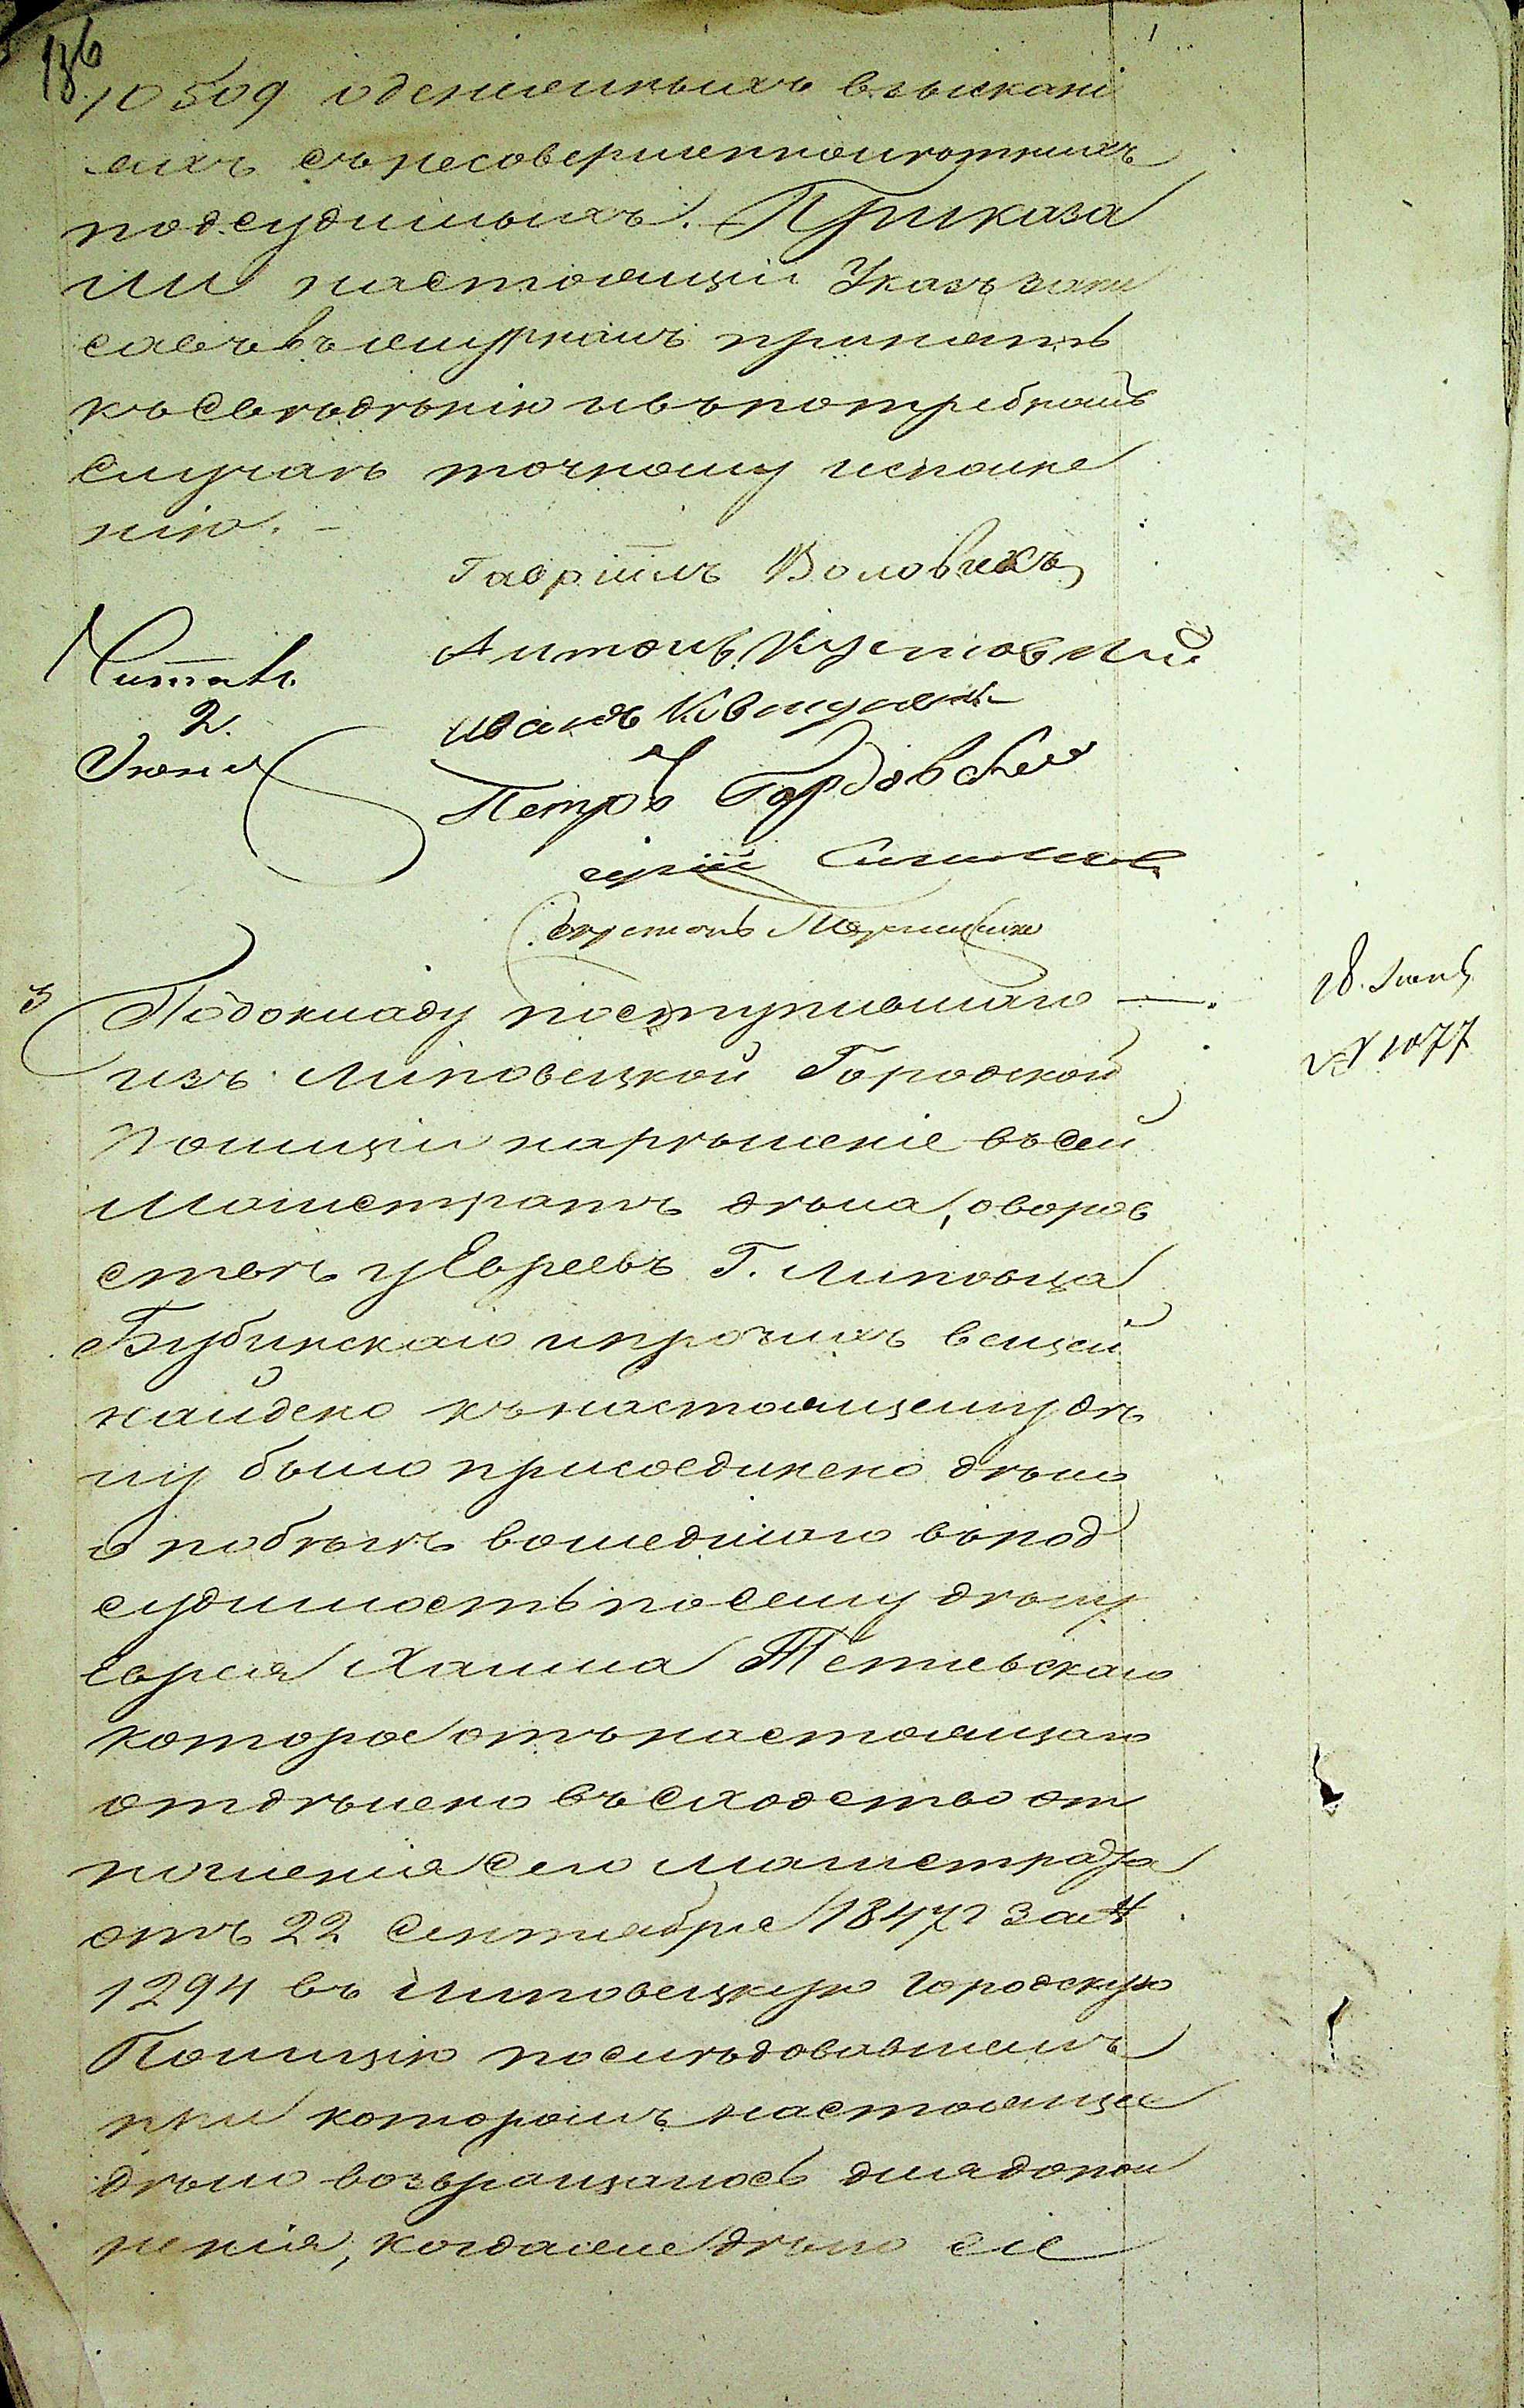 136
10509 о денежныхъ взыскані
яхъ съ несовершеннолѣтнихъ
подсудимыхъ. Приказа
ли настоящій Указъ запи
савъ въ журналъ принять
къ Свѣдѣнію и въ потребномъ
случаѣ точному исполне
нію. –
Гавріилъ Воловикъ
Антонъ Кустовскій
Читалъ
Иванъ
2.
Іюня
Петръ Гордовскій
Секретарь
3
По докладу поступившаго —
18. Іюня
№ 1077
изъ Липовецкой Городской
Полиціи на рѣшеніе въ сей
Магистратъ дѣла, о воров
ствѣ у Евреевъ Г. Липовца
Бубинскаго и прочихъ вещей
найдено къ настоящему дѣ
лу было присоединено дѣло
о побѣгѣ вошедшаго въ под
судимость по сему дѣлу
еврея Хаима Тетіевскаго
которое отъ настоящаго
отдѣлено въ сходство от
ношенія сего Магистрата
отъ 22 Сентября 1847 г за №
1294 въ Липовецкую Городскую
Полицію послѣдовавшемъ
при которомъ настоящее
дѣло возвращалось для допол
ненія, когда же дѣло сіе